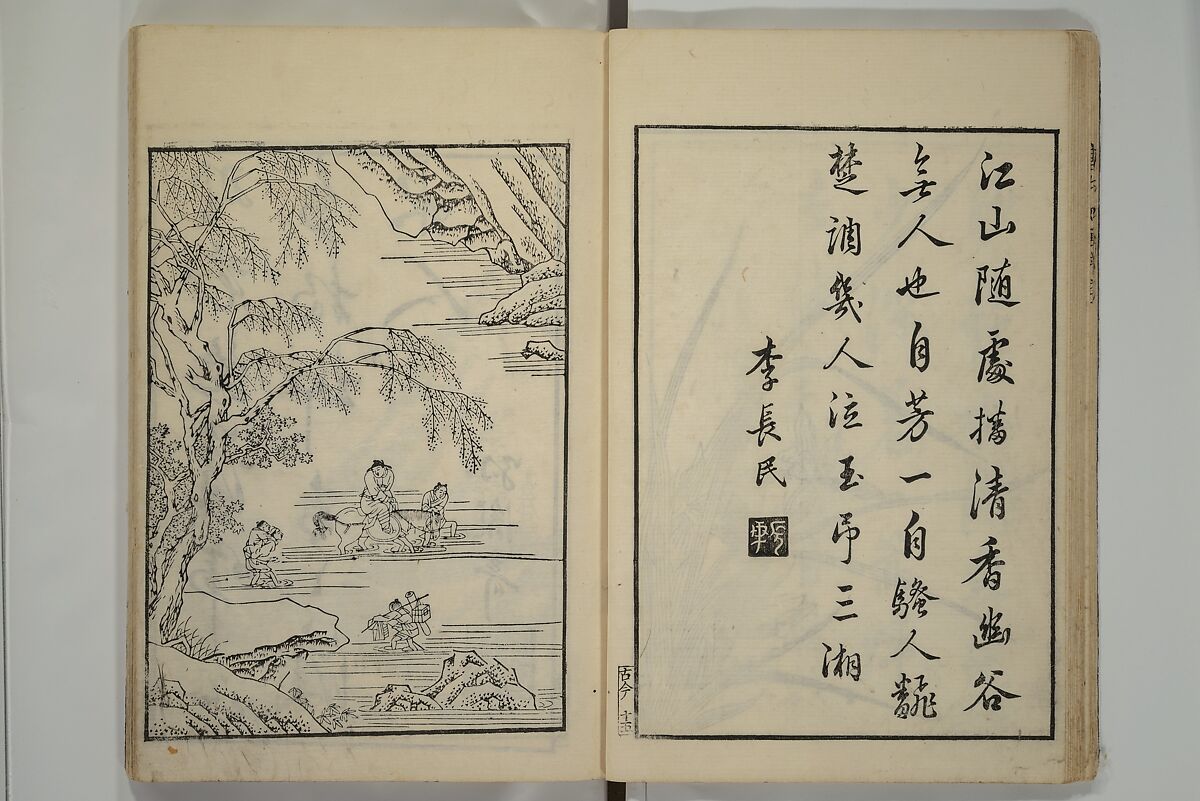 江山随處播清香幽谷
無人也自芳一自騷人飜
楚調幾人泣玉吊三湘
李長民
古今 十四